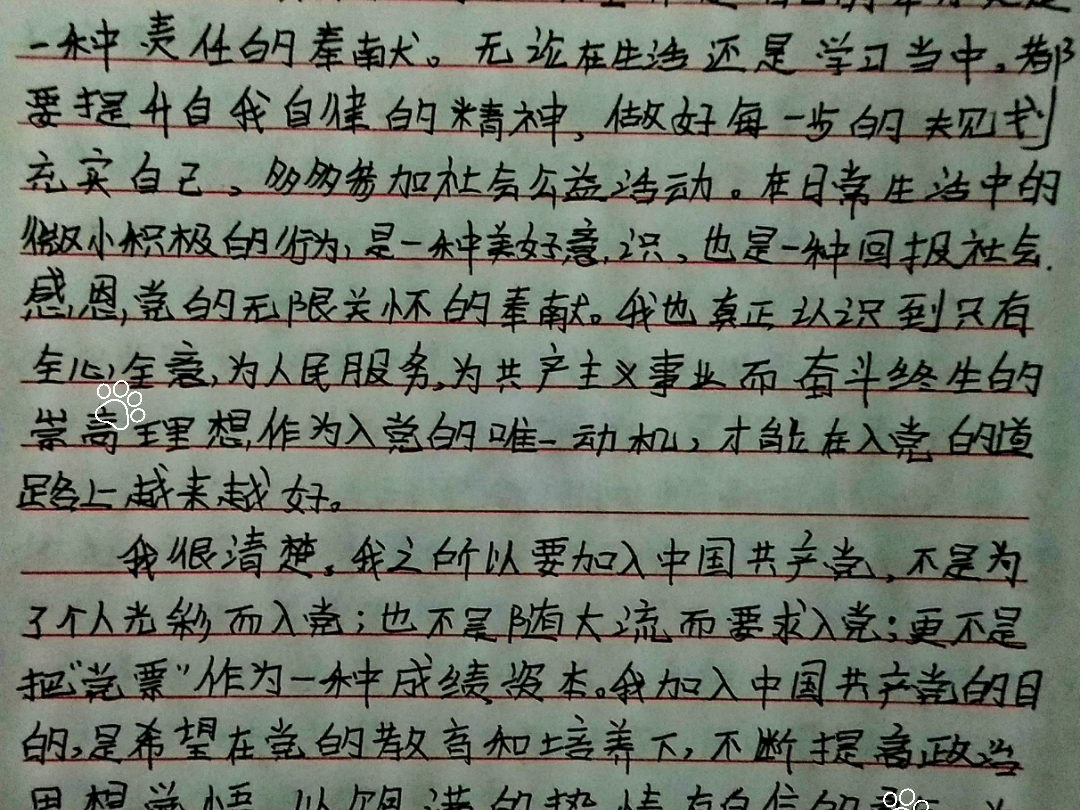 一种责任的奉献。无论在生活还是学习当中,都
要提升自我自律的精神,做好每一步的规划
充实自己,多多参加社会公益活动。在日常生活中的
做小积极的行为,是一种美好意识,也是一种回报社会.
感恩,党的无限关怀的奉献。我也真正认识到只有
全心全意,为人民服务,为共产主义事业而奋斗终生的
崇高理想,作为入党的唯一动机,才能在入党的道
路上越来越好。
我很清楚,我之所以要加入中国共产党,不是为
了个人光彩而入党;也不是随大流而要求入党;更不是
把“党票”作为一种成绩,资本。我加入中国共产党的目
的,是希望在党的教育和培养下,不断提高政治
思想觉悟,以饱满的热情有自信的